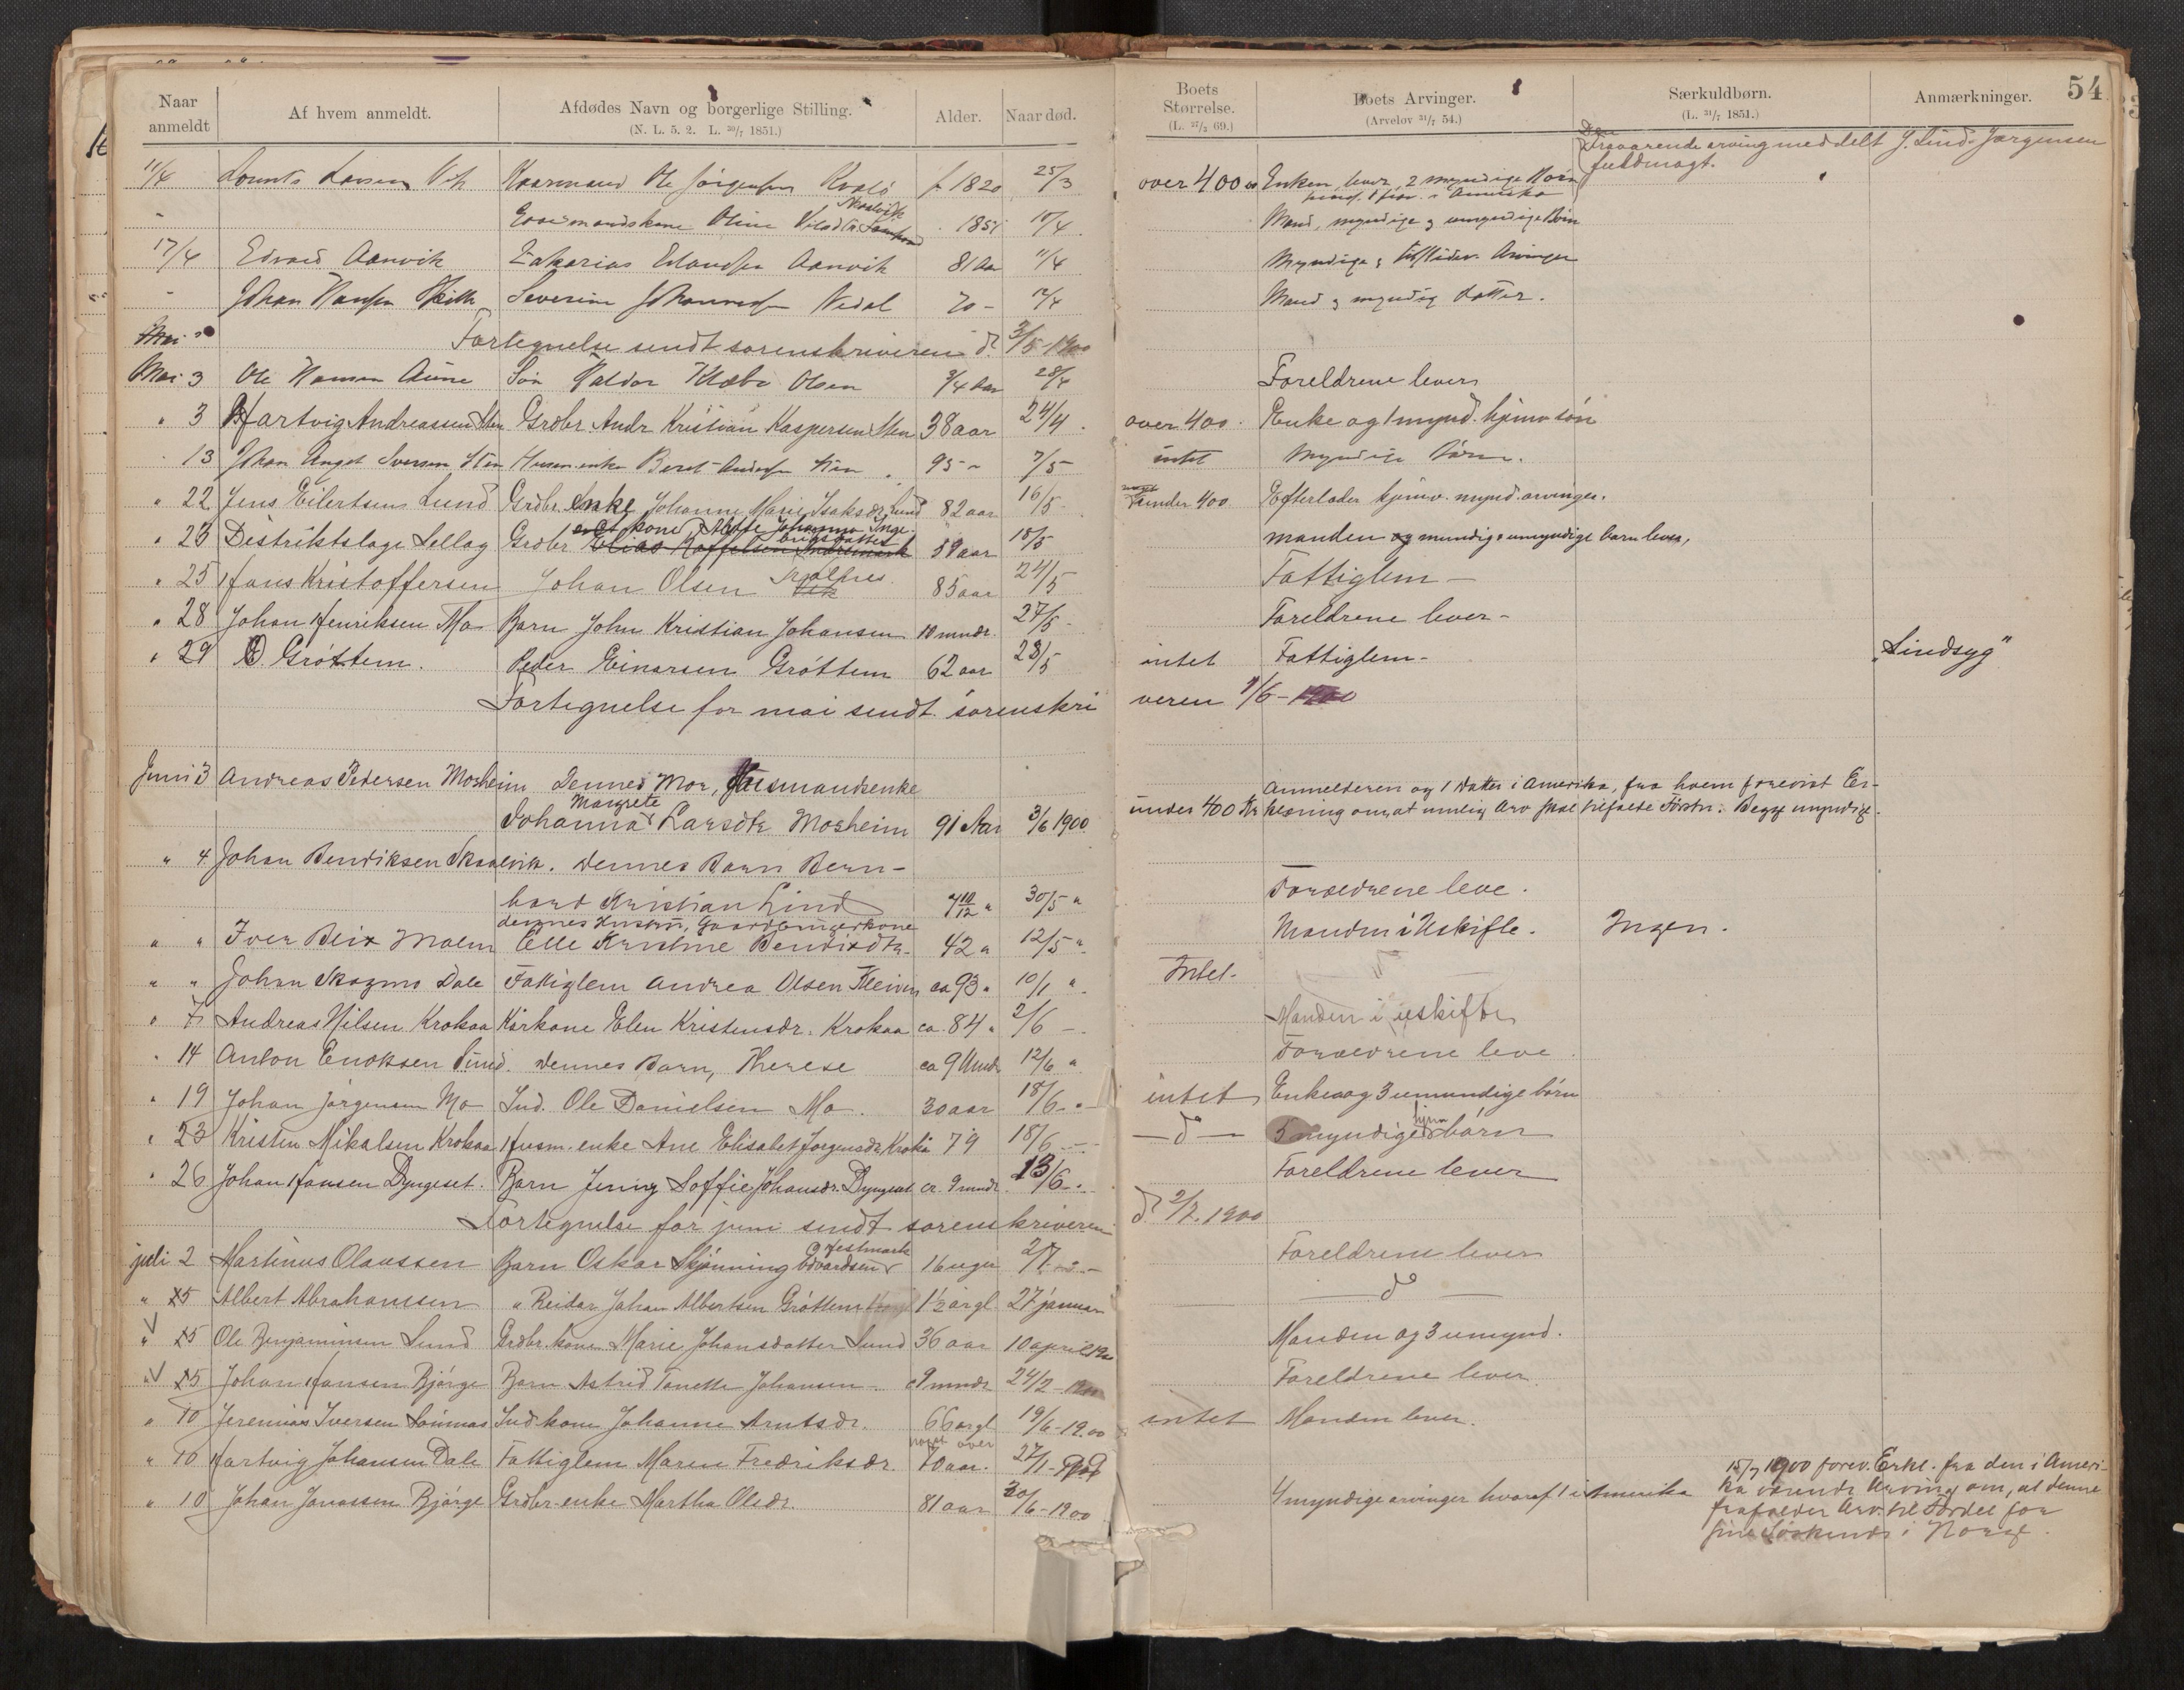 Naar anmeldt
Af hvem anmeldt.
Afdødes Navn og borgerlige Stilling.
(N. L. 5. 2. L. 30/7 1851.)
Alder.
Naar død.
Boets Størrelse.
(L. 27/3 69.)
Boets Arvinger.
(Arvelov 31/7 54.)
Særkuldbørn.
(L. 31/7 1851.)
Anmærkninger.
54
Fraværende arving meddelt J. Lind-Jørgensen
fuldmagt.
11/4 Larsen Vik Ole Jørgensen Kvalø f 1820 25/3 over 400 Enken lever, 2 myndige Børn
Amerika
" Oline 10/4 Mand, myndige og umyndige Børn
17/4 Edvard Aanvik Zakarias Aanvik 81 Aar 11/4 Myndige Arvinger
" Johan Hansen Severine Vedal 70 - 12/4 Mand og myndig datter.
Mai
Fortegnelse sendt sorenskriveren d. 3/5-1900
Mai 3 Ole Hansen Aune Søn Haldor Klæbo Olsen 3/4 Aar 28/4 Foreldrene lever
" 3 Hartvig Andreassen Sten Grdbr. Andr Kristian Kaspersen Sten 38 aar 24/4 over 400. Enke og 1 mynd. hjemv søn
" 13 Johan Angel Iversen Sten enke Beret 95 - 7/5 intet Myndige Børn.
" 22 Jens Eilertsen Lund Grdbr. Enke Johanne Marie Isaksdr Lund 82 aar 16/5 under 400 Efterlader hjemv. mynd. arvinger.
kone Johanna Inge-
brigtsdatter
" 23 Distriktslæge Sellæg Grdbr Elias 59 aar 18/5 manden og mundige umyndige barn lever,
" 25 Hans Kristoffersen Johan Olsen Vik 85 aar 24/5 Fattiglem -
" 28 Johan Henriksen Mo Barn John Kristian Johansen 10 mndr. 27/5 Foreldrene lever -
" 29 O Grøttem. Peder Einarsen Grøttem 62 aar 28/5 intet Fattiglem - „Sindsyg"
Fortegnelse for mai sendt sorenskri veren 1/6 - 1900
Juni 3 Andreas Pedersen Mosheim Dennes Mor, Husmandsenke Anmelderen og 1 datter i Amerika, fra hvem forevist Er-
Margrete
Johanna Larsdtr Mosheim 91 Aar 3/6 1900 under 400 Kr klæring om, at mulig Arv skal tilfalde Førstn. Begge myndige.
" 4 Johan Bendriksen Skaalvik. Dennes Barn Bern-
hard Kristian Lind 7 10/12 " 30/5 " Forældrene leve.
dennes Hustru, Gaardbrugerkone
" " Iver Blix Moen Elle Kristine Bendixdtr. 42 " 12/5 " Manden i Uskifte. Ingen.
" " Johan Skogmo Dale Fattiglem Andrea Olsen Kleiven ca 93 " 10/1 " Intet.
" 7 Andreas Nilsen Krokaa Kårkone Elen Kristensdr. Krokaa ca. 84 " 2/6 - Manden i uskifte
" 14 Anton Enoksen Sund. Dennes Barn, Therese ca 9 Mndr 12/6 " Forældrene leve.
" 19 Johan Jørgensen Mo Ind. Ole Danielsen Mo. 30 aar 18/6 - " intet Enke og 3 umundige børn
" 23 Kristen Mikalsen Krokaa Husm. enke Ane Elisabet Jørgensdr Krokå 79 18/6 - - d - 5 myndige hjm børn
" 26 Johan Hansen Dyngeset. Barn Jenny Soffie Johansdr. Dyngeset ca. 9 mndr. 13/6 - Foreldrene lever
Fortegnelse for juni sendt sorenskriveren d 2/7. 1900
Vestmark
juli 2 Martinus Olaussen Barn Oskar Skjønning Edvardsen 16 uger 2/7 Foreldrene lever
" 5 Albert Abrahamsen " Reidar Johan Albertsen Grøttem 1½ årgl 27 januar - d -
" 5 Ole Benjaminsen Lund Grdbr. kone Marie Johansdatter Lund 36 aar 10 april Manden og 3 umynd.
" 5 Johan Hansen Bjørge Barn Astrid Tanette Johansen 9 mndr 24/2 Foreldrene lever
" 10 Jeremias Iversen Ind kone Johanne Arntsdr. 66 årgl 19/6-1900 intet Manden lever.
noget over
" 10 Hartvig Johansen Dale Fattiglem Maren Fredriksdr. 70 aar. 27/1
" 10 Johan Jonassen Bjørge Grdbr. enke Martha Olsdr. 81 aar 30/6-1900 4 myndige arvinger hvoraf 1 i Amerika
15/7 1900 forev. Erkl. fra den i Ameri-
ka værende Arving om, at denne
frafalder Arv til Fordel for
sine Søskende i Norge.